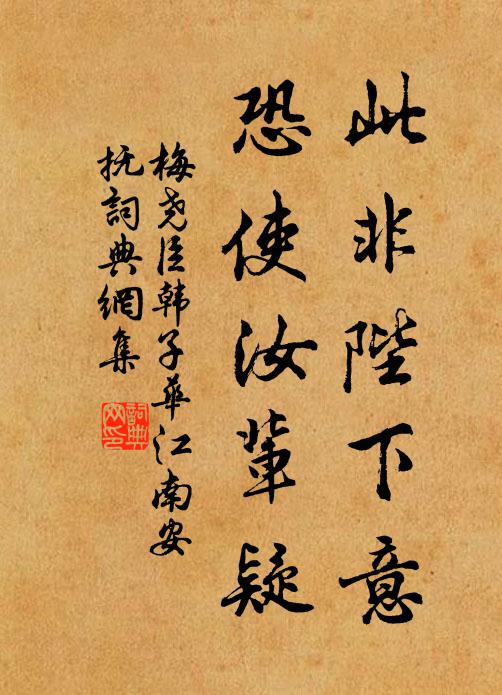 此非陛下意
恐使汝輩疑
梅尧臣韩子華江南安
抚詞典網集
詞典
网印